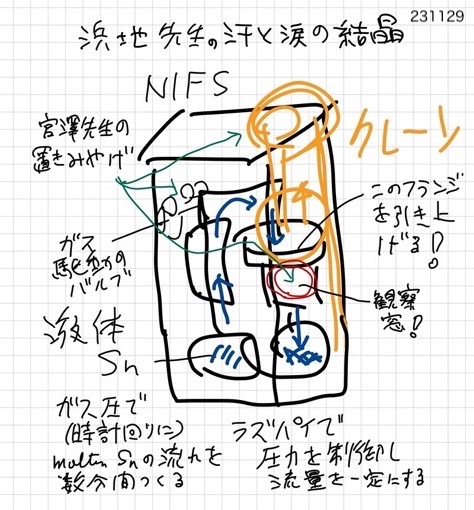 231129
浜地先生の汗と涙の結晶
NIFS
宮澤先生の
置きみやげ
クレーン
この フランジ
を引き上
げる!
ガス
駆動の
バルブ
観察
窓!
液体
Sn
ガス圧で
(時計回りに)
molten Snの流れを
数分間つくる
ラズパイで
圧力を制御し
流量を一定にする